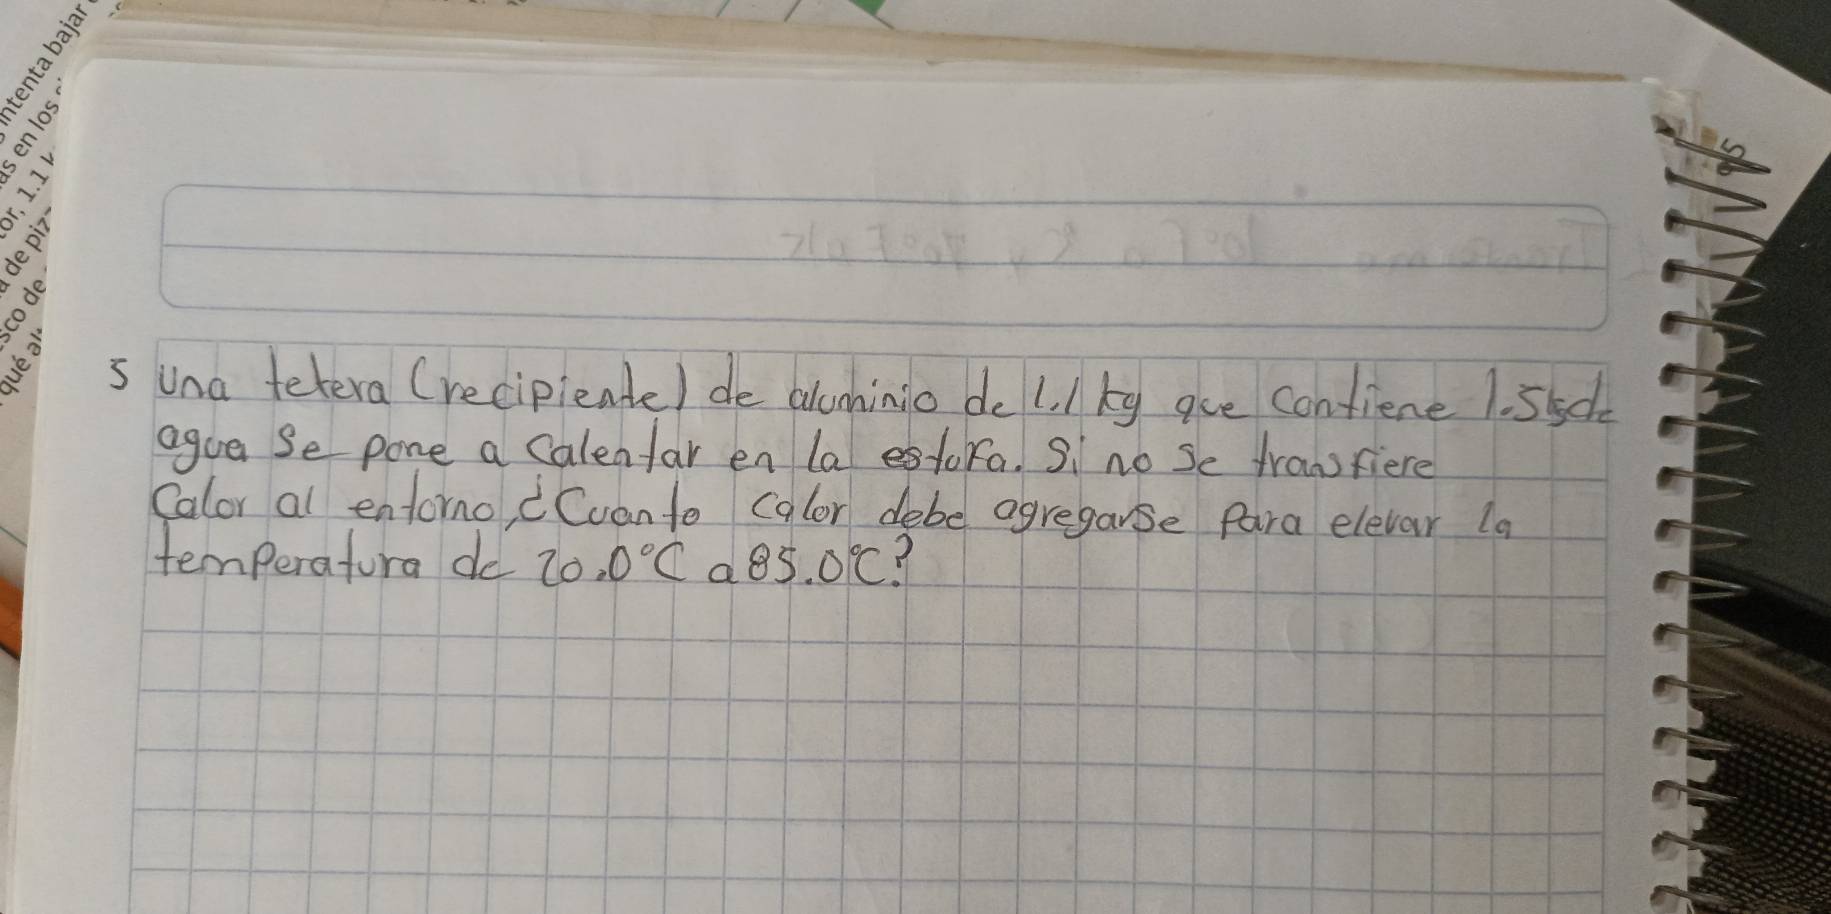 intenta bajar
as en los
or, 1.1 k
de piz
sco de
qué al
5 Una tetera (recipiente) de aluminio de 1.1 kg que contiene 1.5kgde
agua se pone a calentar en la estofa. Si no se transfiere
Calor al entorno, ¿Cuanto calor debe agregarse Para elevar la
temperatura de 20.0°C a 85.0°C?